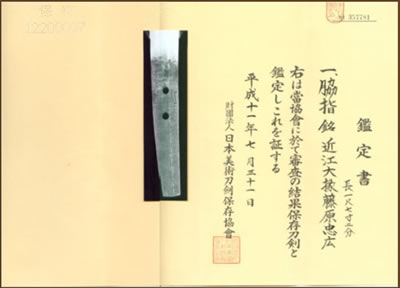 鑑定書
一、脇指 銘 近江大掾藤原忠広
長一尺七寸二分
右は當協會に於て審査の結果保存刀剣と
鑑定しこれを証する
平成十一年七月三十一日
財團法人 日本美術刀剣保存協會